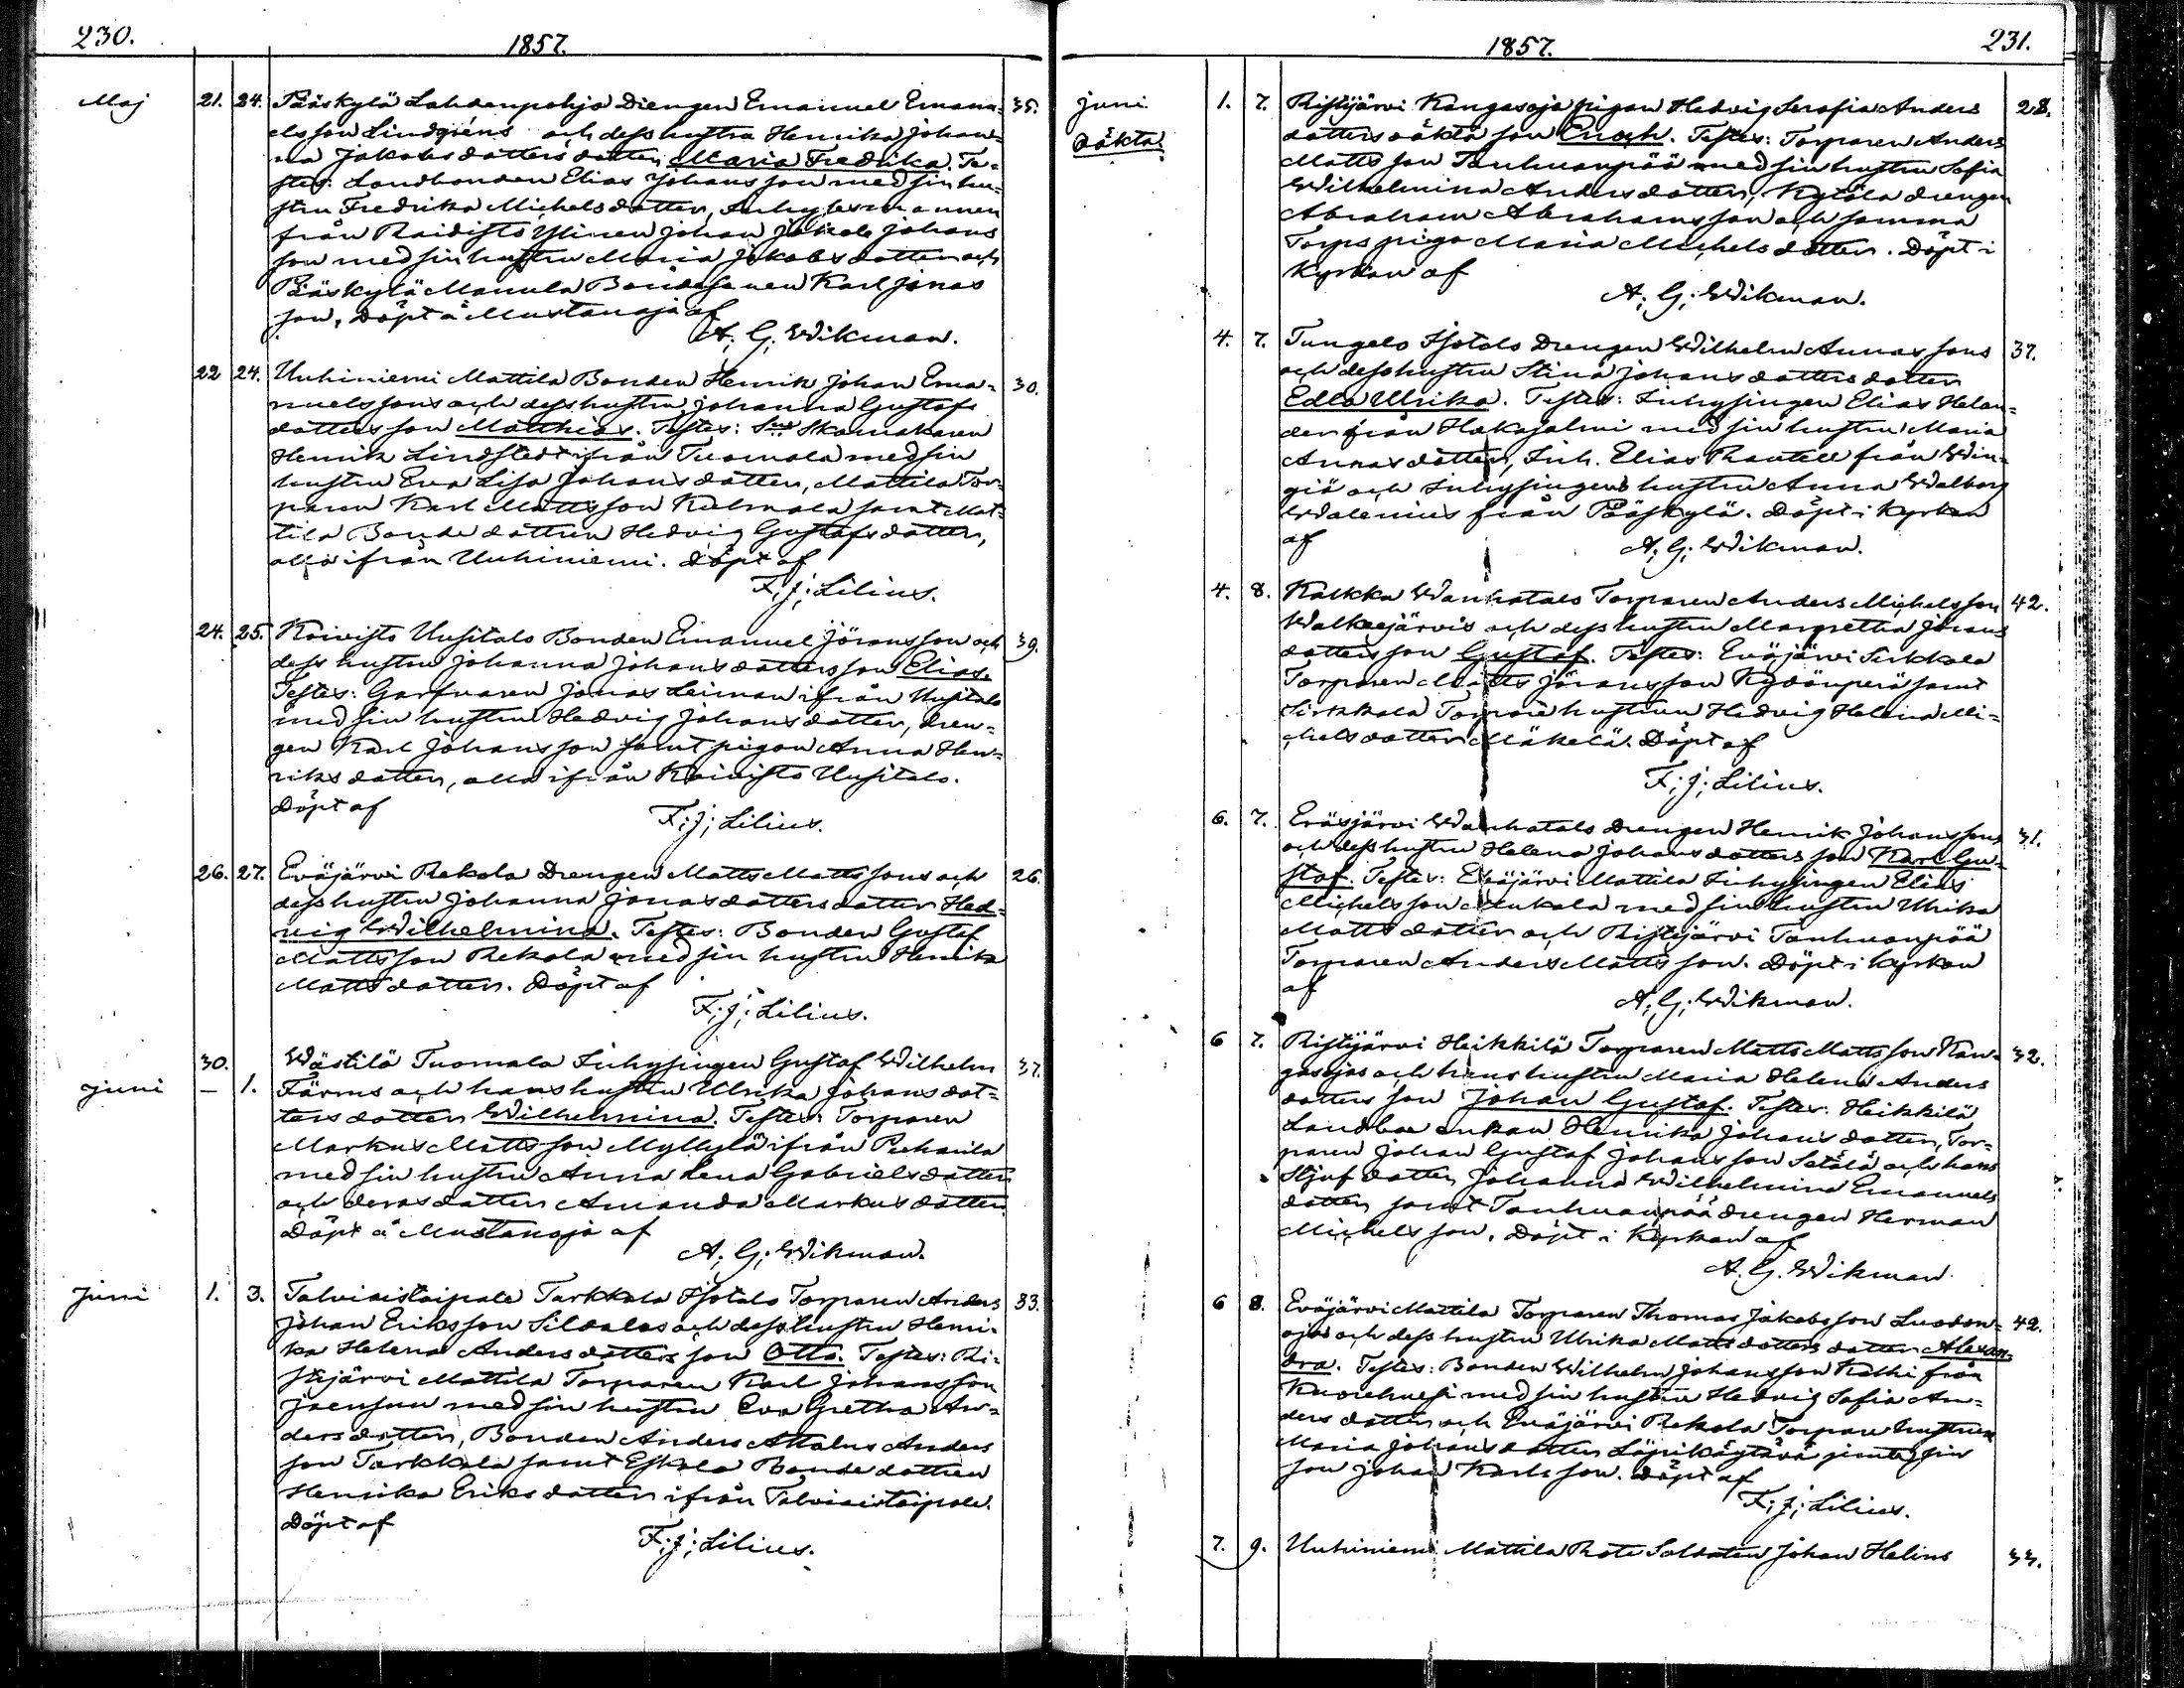 230.
1857.
Maj 21. 24. Pääskylä Lahdenpohja Drengen Emanuel Emanu= 35.
elsson Lindgréns och dess hustru Henrika Johan=
na Jakobsdotters dotter Maria Fredrika. Te=
stes: Landbonden Elias Johansson med sin hu=
stru Fredrika Michelsdotter, Inhysesmannen
från Raidisto Ylinen Johan Jakob Johans
son med sin hustru Maria Jakobsdotter och
Pääskylä Mannila Bondesonen Karl Jonas
son, Döpt å Mustanoja af
A; G; Wikman.
22 24. Uuhiniemi Mattila Bonden Henrik Johan Ema= 30.
nuelssons och dess hustru Johanna Gustafs
dotters son Matthias. Testes: Skomakaren
Henrik Lindstedt ifrån Tuomala med sin
hustru Eva Lisa Johansdotter, Mattila Tor=
paren Karl Mattsson Kulmala samt Mat=
tila Bonde dottren Hedvig Gustafsdotter,
alla ifrån Uuhiniemi. Döpt af
F; J; Lilius.
24. 25. Koivisto Uusitalo Bonden Emanuel Jöransson och 39.
dess hustru Johanna Johansdotters son Elias.
Testes: Garfvaren Jonas Leiman ifrån Uusitalo
med sin hustru Hedvig Johansdotter, dren=
gen Karl Johansson samt pigan Anna Hen=
riksdotter, alla ifrån Koivisto Uusitalo.
Döpt af
F; J; Lilius.
26. 27. Eväjärvi Rekola Drengen Matts Mattssons och 26.
dess hustru Johanna Jonasdotters dotter Hed=
vig Wilhelmina. Testes: Bonden Gustaf
Mattsson Rekola med sin hustru Henrika
Mattsdotter. Döpt af
F; J; Lilius.
30. Wästilä Tuomala Inhysingen Gustaf Wilhelm 37.
Juni — 1. Färms och hans hustru Ulrika Johansdot=
ters dotter Wilhelmina. Testes: Torparen
Markus Mattsson Myllylä ifrån Puharila
med sin hustru Anna Lena Gabrielsdotter
och deras dotter Amanda Markusdotter.
Döpt å Mustanoja af
A; G; Wikman.
Juni 1. 3. Talviaistaipale Tarkkala Isotalo Torparen Anders 33.
Johan Eriksson Sillalas och dess hustru Henri=
ka Helena Andersdotters son Otto. Testes: Ri=
stijärvi Mattila Torparen Karl Johansson
Joensuu med sin hustru Eva Gretha An=
dersdotter, Bonden Anders Attalus Anders
son Tarkkala samt Eskola Bonde dottren
Henrika Eriksdotter ifrån Talviaistaipale.
Döpt af
F; J; Lilius.
1857.
231.
Juni 1. 7. Ristijärvi Kangasoja pigan Hedvig Serafia Anders 28.
oäkta. dotters oäkta son Enoch. Testes: Torparen Anders
Mattsson Tanhuanpää med sin hustru Sofia
Wilhelmina Andersdotter, Kytölä drengen
Abraham Abrahamsson och samma
Torps piga Maria Michelsdotter. Döpt i
Kyrkan af
A; G; Wikman.
4. 7. Tungelo Isotalo Drengen Wilhelm Annassons 37.
och dess hustru Stina Johansdotters dotter
Edla Ulrika. Testes: Inhysingen Elias Helan=
der från Hakasalmi med sin hustru Maria
Annasdotter, Inh. Elias Rantell från Win=
giä och Inhysingens hustru Anna Walborg
Walenius från Pääskylä. Döpt i Kyrkan
af
A; G; Wikman.
4. 8. Kalkku Wanhatalo Torparen Anders Michelsson 42.
Walkeejärvis och dess hustru Margretha Jörans
dotters son Gustaf. Testes: Eväjärvi Sirkkala
Torparen Matts Jöransson Kydönperä samt
Sirkkala Torpare hustrun Hedvig Helena Mi=
chelsdotter Mäkelä. Döpt af
F; J; Lilius.
6. 7. Eräsjärvi Wanhatalo Drengen Henrik Johanssons 31.
och dess hustru Helena Johansdotters son Karl Gu=
staf. Testes: Eväjärvi Mattila Inhysingen Elias
Michelsson med sin hustru Ulrika
Mattsdotter och Ristijärvi Tanhuanpää
Torparen Anders Mattsson. Döpt i Kyrkan
af
A; G; Wikman.
6 7. Ristijärvi Heikkilä Torparen Matts Mattsson Kan= 32.
gasojas och hans hustru Maria Helena Anders
dotters son Johan Gustaf. Testes: Heikkilä
Landboenkan Henrika Johansdotter, Tor=
paren Johan Gustaf Johansson Setälä och hans
Stjufdotter Johanna Wilhelmina Emanuels
dotter samt Tanhuanpää drengen Herman
Michelsson. Döpt i Kyrkan af
A. G. Wikman
6 8. Eväjärvi Mattila Torparen Thomas Jakobsson Luodon= 42.
ojas och dess hustru Ulrika Mattsdotters dotter Alexan=
dra. Testes: Bonden Wilhelm Johansson Kalhi från
Kuorehvesi med sin hustru Hedvig Sofia An=
dersdotter och Eväjärvi Rekola Torpare hustrun
Maria Johansdotter Läpikäytävä jemte sin
son Johan Karlsson. Döpt af
F; J; Lilius.
7. 9. Uuhiniemi Mattila Rote Soldaten Johan Helins 33.